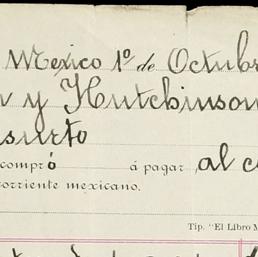 Mexico 1º de Octubre
y Hutchinson
surto
compró á pagar al c
corriente mexicano.
Tip. "El Libro M